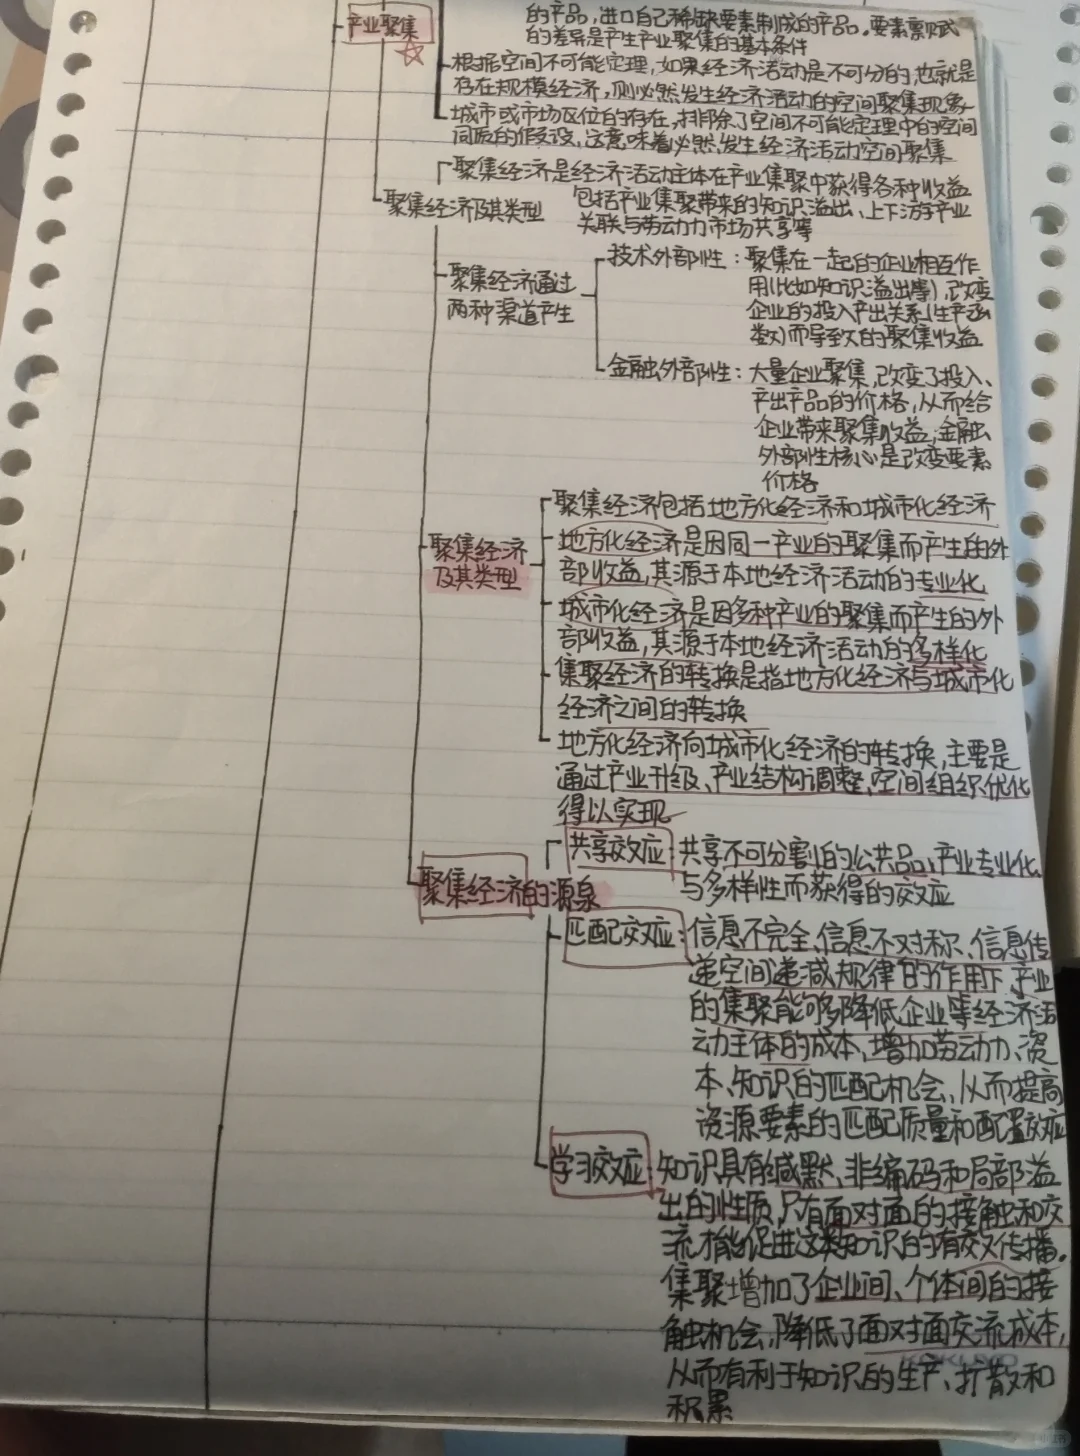 的产品,进口自己稀缺要素制成的产品。要素禀赋
产业聚集
的差异是产生产业聚集的基本条件
根据空间不可能定理,如果经济活动是不可分的,也就是
存在规模经济,则必然发生经济活动的空间聚集现象
城市或市场区位的存在,排除了空间不可能定理中的空间
同质的假设,这意味着必然发生经济活动空间聚集
聚集经济是经济活动主体在产业集聚中获得各种收益
聚集经济及其类型
包括产业集聚带来的知识溢出、上下游产业
关联与劳动力市场共享等
聚集经济通过
两种渠道产生
技术外部性:聚集在一起的企业相互作
用(比如知识溢出等),改变
企业的投入产出关系(生产函
数)而导致的聚集收益
金融外部性:大量企业聚集,改变了投入、
产出产品的价格,从而给
企业带来聚集收益,金融
外部性核心是改变要素
价格
聚集经济
及其类型
聚集经济包括地方化经济和城市化经济
地方化经济是因同一产业的聚集而产生的外
部收益,其源于本地经济活动的专业化
城市化经济是因多种产业的聚集而产生的外
部收益,其源于本地经济活动的多样化
集聚经济的转换是指地方化经济与城市化
经济之间的转换
地方化经济向城市化经济的转换,主要是
通过产业升级、产业结构调整、空间组织优化
得以实现
聚集经济的源泉
共享效应
共享不可分割的公共品、产业专业化
与多样性而获得的效应
匹配效应:信息不完全、信息不对称、信息传
递空间递减规律的作用下,产业
的集聚能够降低企业等经济活
动主体的成本、增加劳动力、资
本、知识的匹配机会,从而提高
资源要素的匹配质量和配置效应
学习效应:知识具有缄默、非编码和局部溢
出的性质,只有面对面的接触和交
流才能促进这类知识的有效传播。
集聚增加了企业间、个体间的接
触机会,降低了面对面交流成本,
从而有利于知识的生产、扩散和
积累
KOKUYO